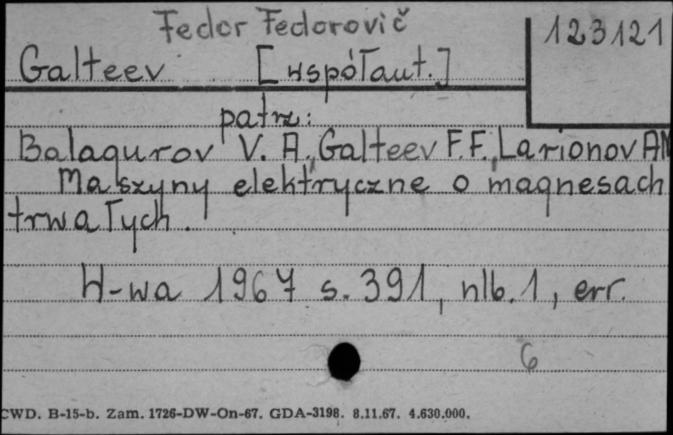 Fedor Fedorovič
123121
Galteev [współaut.]
patrz:
Balagurov V. A., Galteev F.F., Larionov AN
Maszyny elektryczne o magnesach
trwałych.
W-wa 1967 s. 391, nlb. 1, err.
6
CWD. B-15-b. Zam. 1726-DW-On-67. GDA-3198. 8.11.67. 4.630.000.